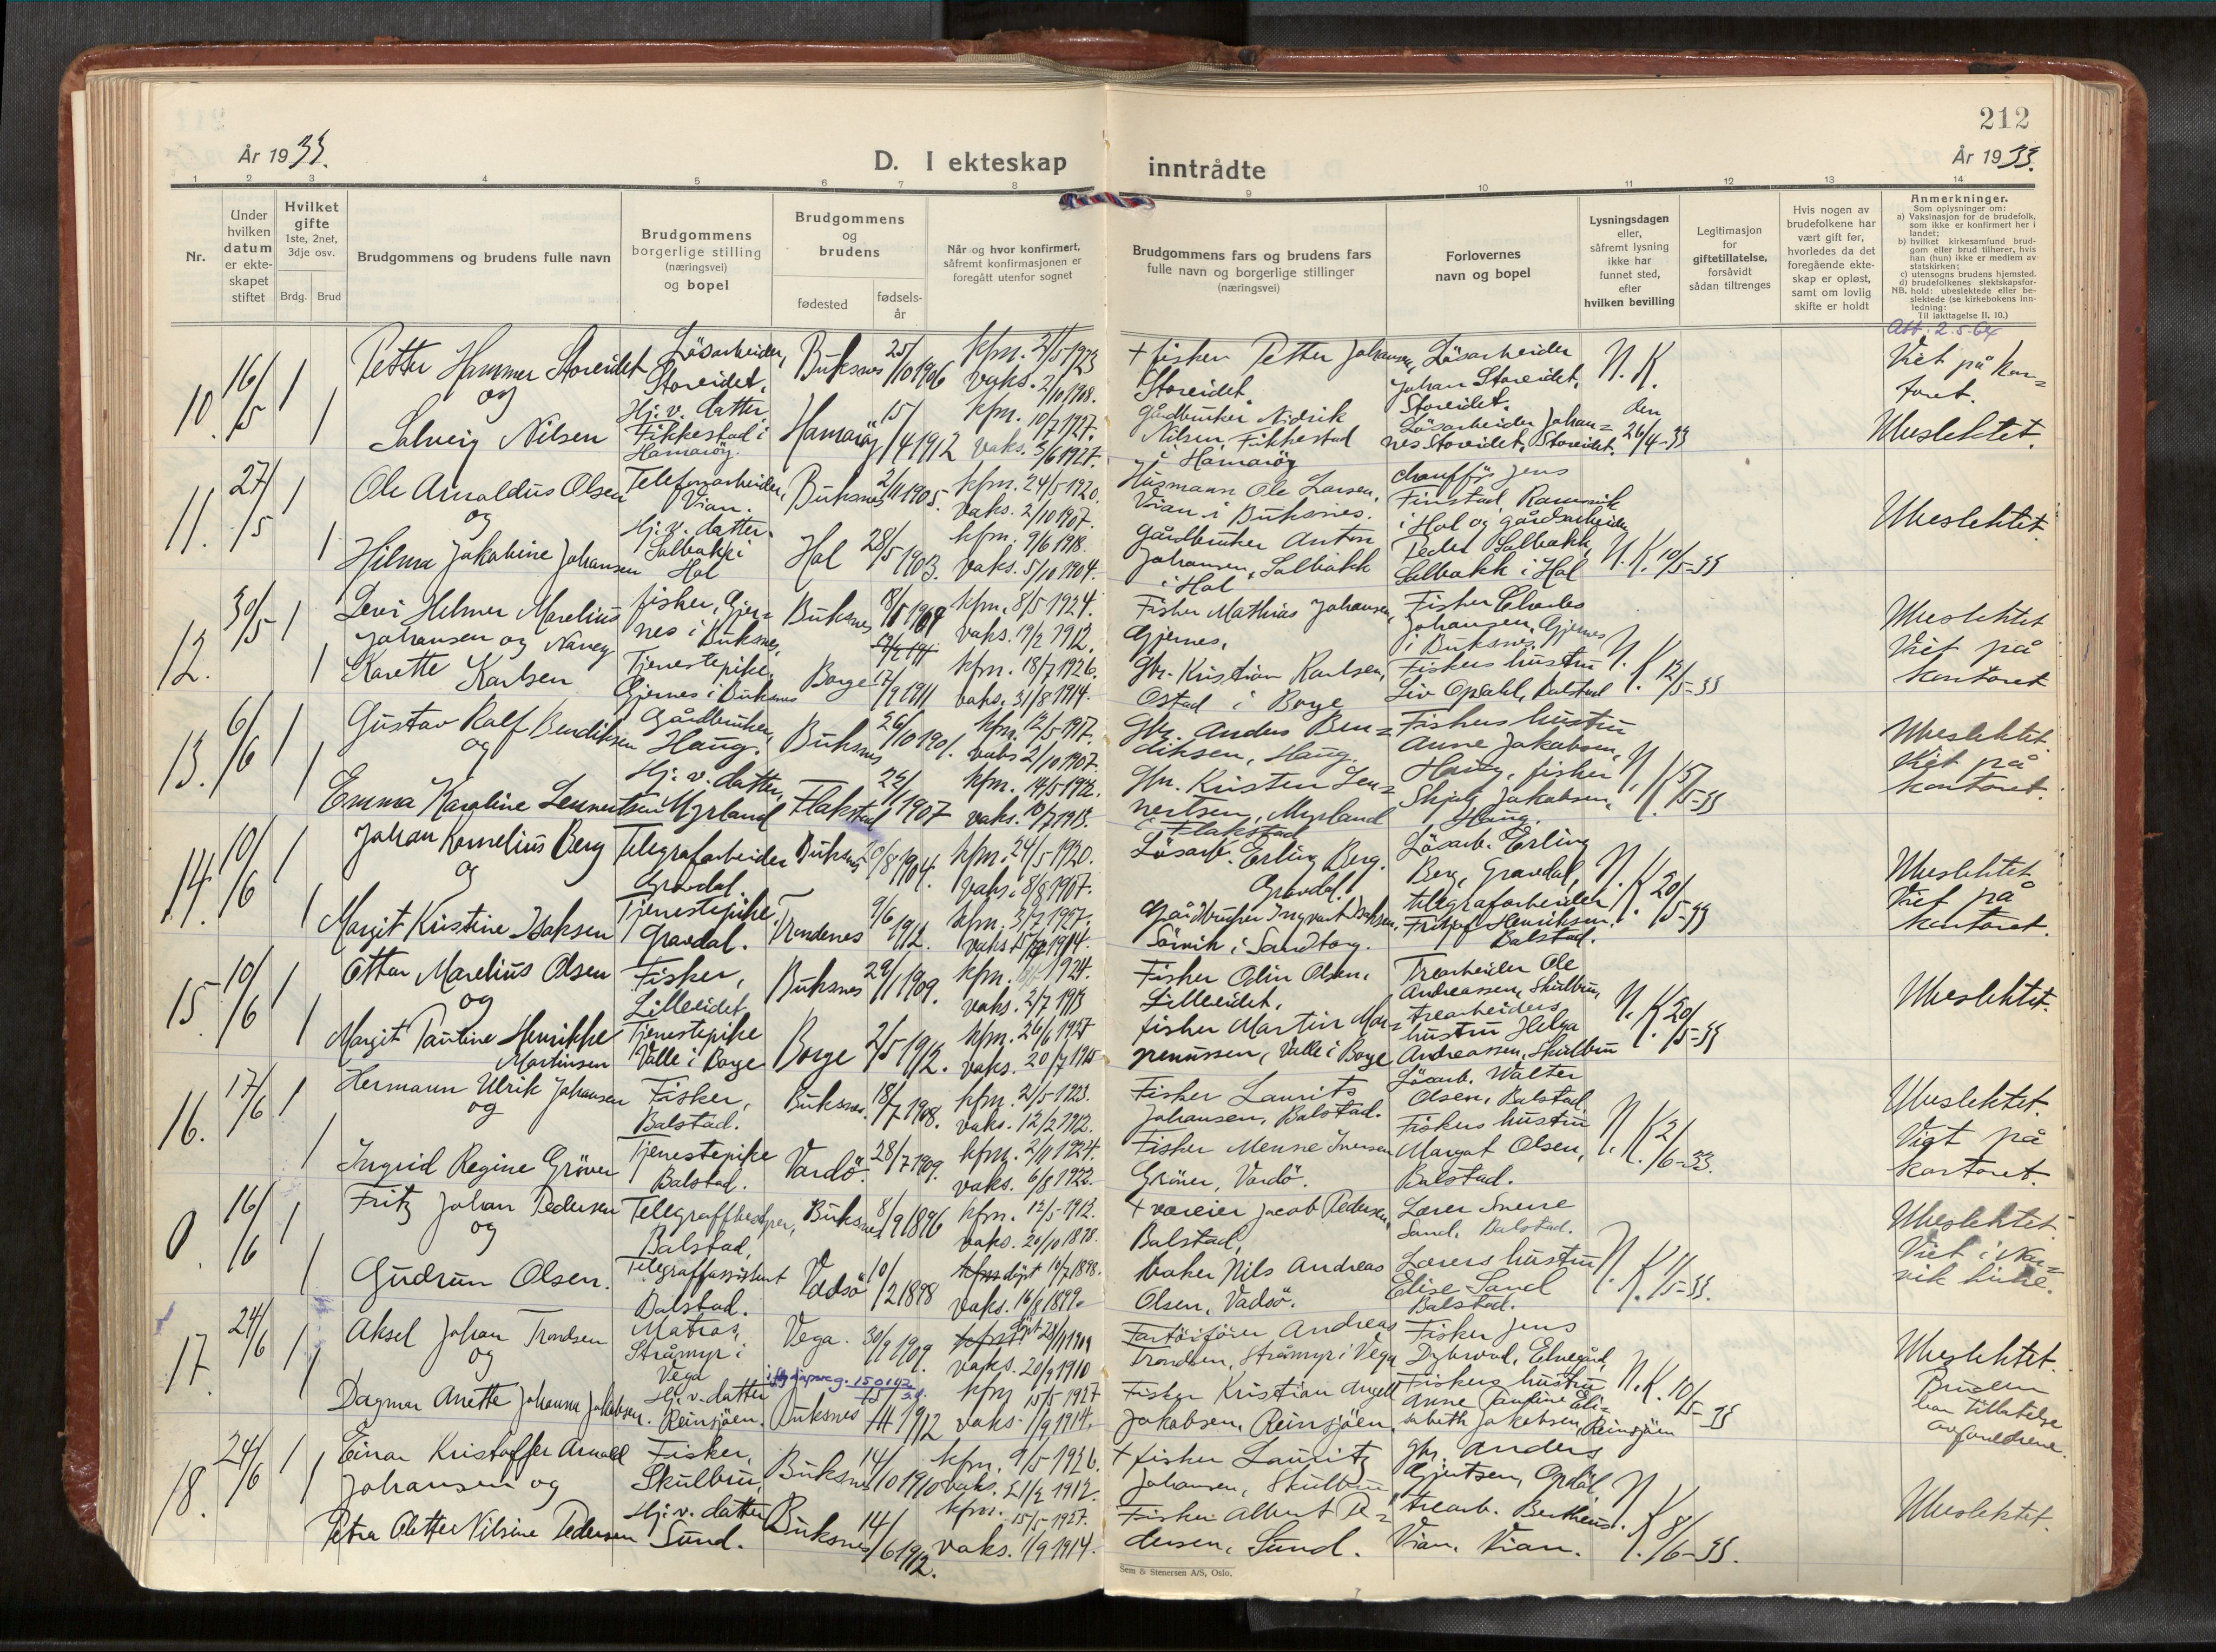 212
År 1933.
D. I ekteskap
inntrådte
År 1933.
1 2 3 4 5 6 7 8 9 10 11 12 13 14
Nr.
Under hvilken datum er ekteskapet stiftet
Hvilket gifte 1ste, 2net, 3dje osv.
Brdg. Brud
Brudgommens og brudens fulle navn
Brudgommens borgerlige stilling (næringsvei) og bopel
Brudgommens og brudens
fødested
fødselsår
Når og hvor konfirmert, såfremt konfirmasjonen er foregått utenfor sognet
Brudgommens fars og brudens fars fulle navn og borgerlige stillinger (næringsvei)
Forlovernes navn og bopel
Lysningsdagen eller, såfremt lysning ikke har funnet sted, efter hvilken bevilling
Legitimasjon for giftetillatelse, forsåvidt sådan tiltrenges
Hvis nogen av brudefolkene har vært gift før, hvorledes da det foregående ekteskap er opløst, samt om lovlig skifte er holdt
Anmerkninger.
Som oplysninger om:
a) Vaksinasjon for de brudefolk, som ikke er konfirmert her i landet;
b) hvilket kirkesamfund brudgom eller brud tilhører, hvis han (hun) ikke er medlem av statskirken;
c) utensogns brudens hjemsted.
d) brudefolkenes slektskapsforhold: ubeslektede eller beslektede (se kirkebokens innledning:
NB. Til iakttagelse II. 10.)
Att. 2.5.64
10. 16/5 1 Petter Hammer Storeidet og
Løsarbeider, Storeidet.
Buksnes 25/10 1906
kfm. 21/5-1923 vaks. 2/10 1908.
+ fisker Petter Johansen, Storeidet.
Løsarbeider Johan Storeidet, Storeidet.
N.K. den 26/4-33
Viet på kontoret.
Ubeslektet.
1 Solveig Nilsen
Hj. v. datter, Fikkestad i Hamarøy.
Hamarøy 15/4 1912
kfm. 10/7 1927. vaks. 3/6 1927.
Gårdbruker Nidrik Nilsen, Fikkestad i Hamarøy
Løsarbeider Johannes Storeidet, Storeidet.
11. 27/5 1 Ole Arnoldus Olsen og
Telefonarbeider, Vian.
Buksnes 2/11 1905.
kfm. 24/5-1920. vaks. 2/10 1907.
Husmann Ole Larsen, Vian i Buksnes.
chauffør Jens Finstad, Ramsvik i Hol og gårdarbeider
Ubeslektet.
1 Hilma Jakobine Johansen
Hj. v. datter Solbakk i Hol
Hol 28/5 1903.
kfm. 9/6 1918. vaks. 5/10 1904.
Gårdbruker Anton Johansen, Solbakk i Hol
Peder Solbakk, Solbakk i Hol
N.K. 10/5-33
12. 30/5 1 Levi Helmer Marelius Johansen og
fisker, Gjernes i Buksnes,
Buksnes
kfm. 8/5 1924. vaks. 19/2 1912.
Fisker Mathias Johansen, Gjernes.
Fisker Charles Johansen, Gjernes i Buksnes.
N.K. 12/5-33
Ubeslektet
Viet på kontoret
1 Nancy Karette Karlsen
Tjenestepike, Gjernes i Buksnes
Borge 17/9 1911
kfm. 18/7 1926. vaks. 31/8 1914.
Gbr. Kristian Karlsen, Ostad i Borge
Fiskers hustru Liv Opdahl, Balstad
13. 6/6 1 Gustav Rolf Bendiksen og
Gårdbruker, Haug.
Buksnes 26/10 1901.
kfm. 12/5-1917. vaks 2/10 1907.
Gbr. Anders Bendiksen, Haug.
Fiskers hustru Anne Jakobsen, Haug, fisker
N.K. 15/5-33
Ubeslektet.
Viet på kontoret.
1 Emma Karoline Lennertsen
Hj. v. datter, Myrland
Flakstad 22/1 1907
kfm. 14/5-1922. vaks. 10/7 1913.
Gbr. Kristen Lennertsen, Myrland i Flakstad
Skjalg Jakobsen, Haug.
14. 10/6 1 Johan Kornelius Berg og
Telegrafarbeider Gravdal.
Buksnes
kfm. 24/5-1920. vaks. 8/8 1907.
Løsarb. Erling Berg. Gravdal.
Løsarb. Erling Berg, Gravdal,
N.K. 20/5-33
Ubeslektet
Viet på kontoret.
1 Margit Kristine Isaksen
Tjenestepike, Gravdal.
Trondenes 9/6 1912.
Gårdbruker Ingvart Isaksen, Sørvik i Sandtorg.
telegrafarbeider Fritjof Henriksen, Balstad.
15. 10/6 1 Ottar Marelius Olsen og
Fisker, Lilleeidet
Buksnes 29/1 1909.
vaks. 2/7 1913
Fisker Odin Olsen, Lilleeidet.
Trearbeider Ole Andreassen, Skulbru,
N.K. 20/5-33
Ubeslektet.
1 Margit Pauline Henrikke Martinsen
Tjenestepike Valle i Borge
Borge 2/5 1912.
kfm. 26/6 1927 vaks. 20/7 1915
fisker Martin Magnussen, Valle i Borge
trearbeiders hustru Helga Andreassen, Skulbru
16. 17/6 1 Hermann Ulrik Johansen og
Fisker, Balstad.
Buksnes. 18/7 1908.
kfm. 21/5-1923. vaks. 12/2 1912.
Fisker Laurits Johansen, Balstad.
Løsarb. Walter Olsen, Balstad
N.K. 2/6-33.
Ubeslektet.
Vigt på kontoret.
1 Ingrid Regine Grøner
Tjenestepike Balstad.
Vardø. 28/7 1909.
kfm. 2/11 1924. vaks. 6/8 1922.
Fisker Menne Iversen Grøner, Vardø.
Fiskers hustru Margot Olsen, Balstad.
0. 16/6 1 Fritz Johan Pedersen og
Telegrafbestyrer, Balstad,
Buksnes 8/9 1896
kfm. 12/5-1912. vaks. 20/10 1898.
+ væreier Jacob Pedersen, Balstad,
Lærer Sverre Sand, Balstad.
N.K. 11/5-33.
Ubeslektet.
Viet i Narvik kirke.
1 Gudrun Olsen.
Telegrafassistent Balstad.
Vadsø 10/2 1898
døpt 10/7 1898. vaks. 16/8 1899.
baker Nils Andreas Olsen, Vadsø.
Lærers hustru Elise Sand Balstad.
17. 24/6 1 Aksel Johan Trondsen og
Matros, Stråmyr i Vega
Vega. 30/9 1909.
vaks. 20/9 1910
Fartøifører Andreas Trondsen, Stråmyr i Vega
Fisker Jens Dybwad, Elvegård,
N.K. 10/5-33
Ubeslektet.
Bruden har tillatelse av foreldrene.
1 Dagmar Anette Johanna Jakobsen.
Hj. v. datter Reinsjøen.
Buksnes
kfm 15/5 1927 vaks. 1/9 1914.
Fisker Kristian Angell Jakobsen, Reinsjøen.
Fiskers hustru Anne Pauline Elisabeth Jakobsen, Reinsjøen
18. 24/6 1 Einar Kristoffer Arnold Johansen og
Fisker, Skulbru,
Buksnes 14/10 1910
kfm. 9/5 1926. vaks. 21/2 1912.
+ fisker Lauritz Johansen, Skulbru
gbr. Anders Gjertsen, Opdøl,
N.K. 8/6-33.
Ubeslektet.
1 Petra Oletter Nilsine Pedersen
Hj. v. datter Sund.
Buksnes 14/6 1912.
kfm. 15/5-1927. vaks. 1/9 1914.
Fisker Albert Pedersen, Sund.
trearb. Bertheus Vian, Vian.
Sem & Stenersen A/S, Oslo.